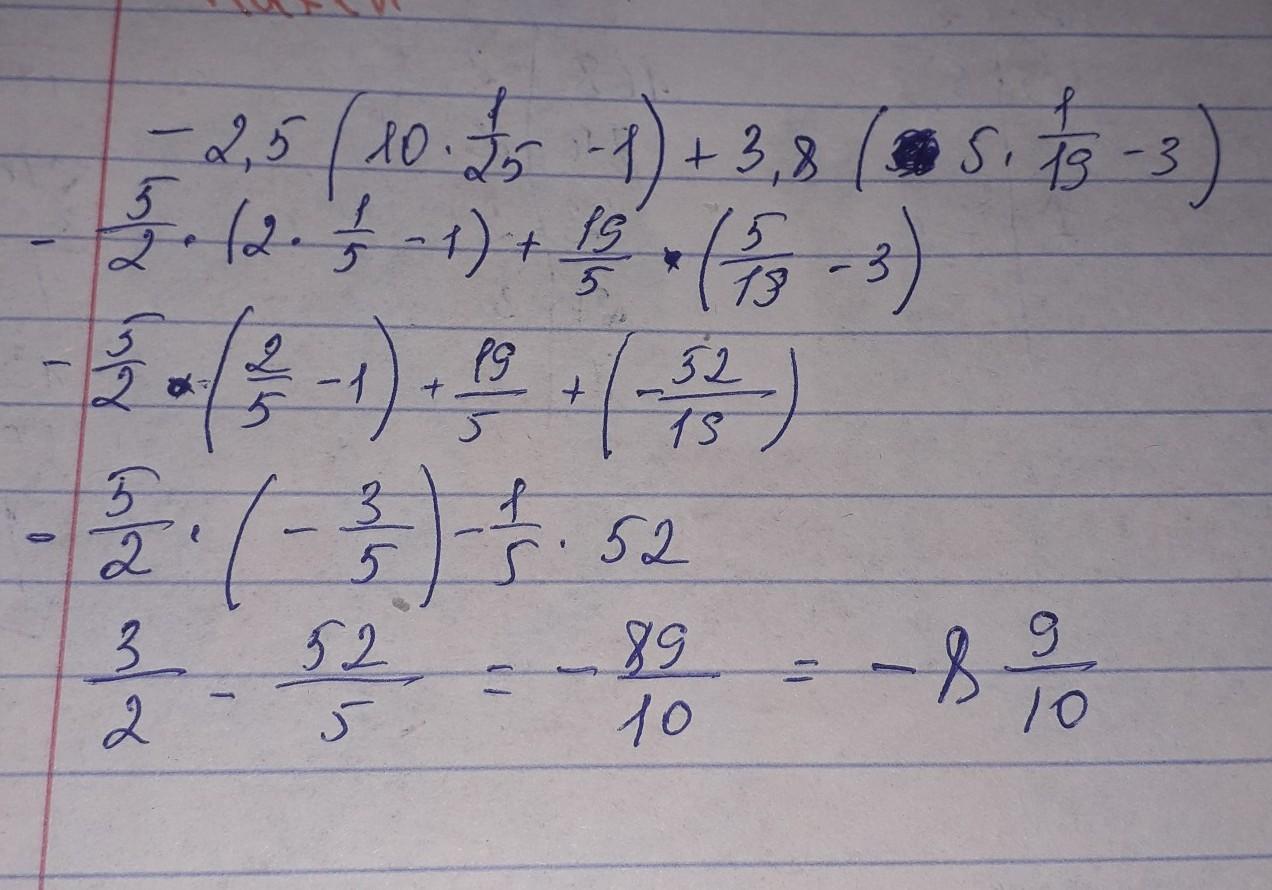 - 2,5 (10 · 1/25 - 1) + 3,8 (5 · 1/19 - 3)
- 5/2 · (2 · 1/5 - 1) + 19/5 · (5/19 - 3)
- 5/2 · (2/5 - 1) + 19/5 + (- 52/19)
- 5/2 · (- 3/5) - 1/5 · 52
3/2 - 52/5 = - 89/10 = - 8 9/10